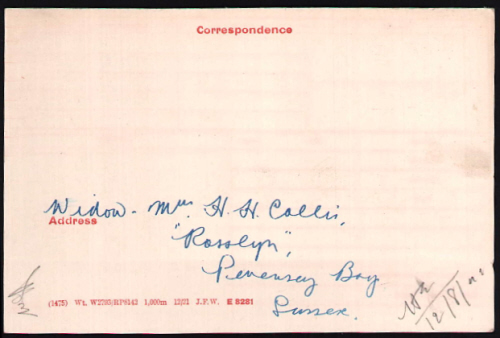 Correspondence
Widow - Mrs H. H. Collis,
Address
"Rosslyn",
Pevensey Bay
Sussex.
(1475) Wt. W2793/RP6142 1,000m 12/21 J.F.W. E 8281
12/8/